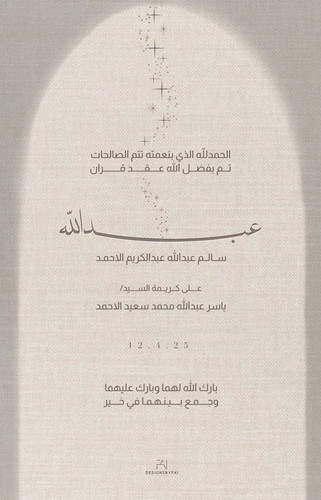 الحمدلله الذي بنعمته تتم الصالحات
تم بفضل الله عقد قران
عبدالله
سالم عبدالله عبدالكريم الاحمد
على كريمة السيد/
ياسر عبدالله محمد سعيد الاحمد
12.4.25
بارك الله لهما وبارك عليهما
وجمع بينهما في خير
DESIGNEBYFAI